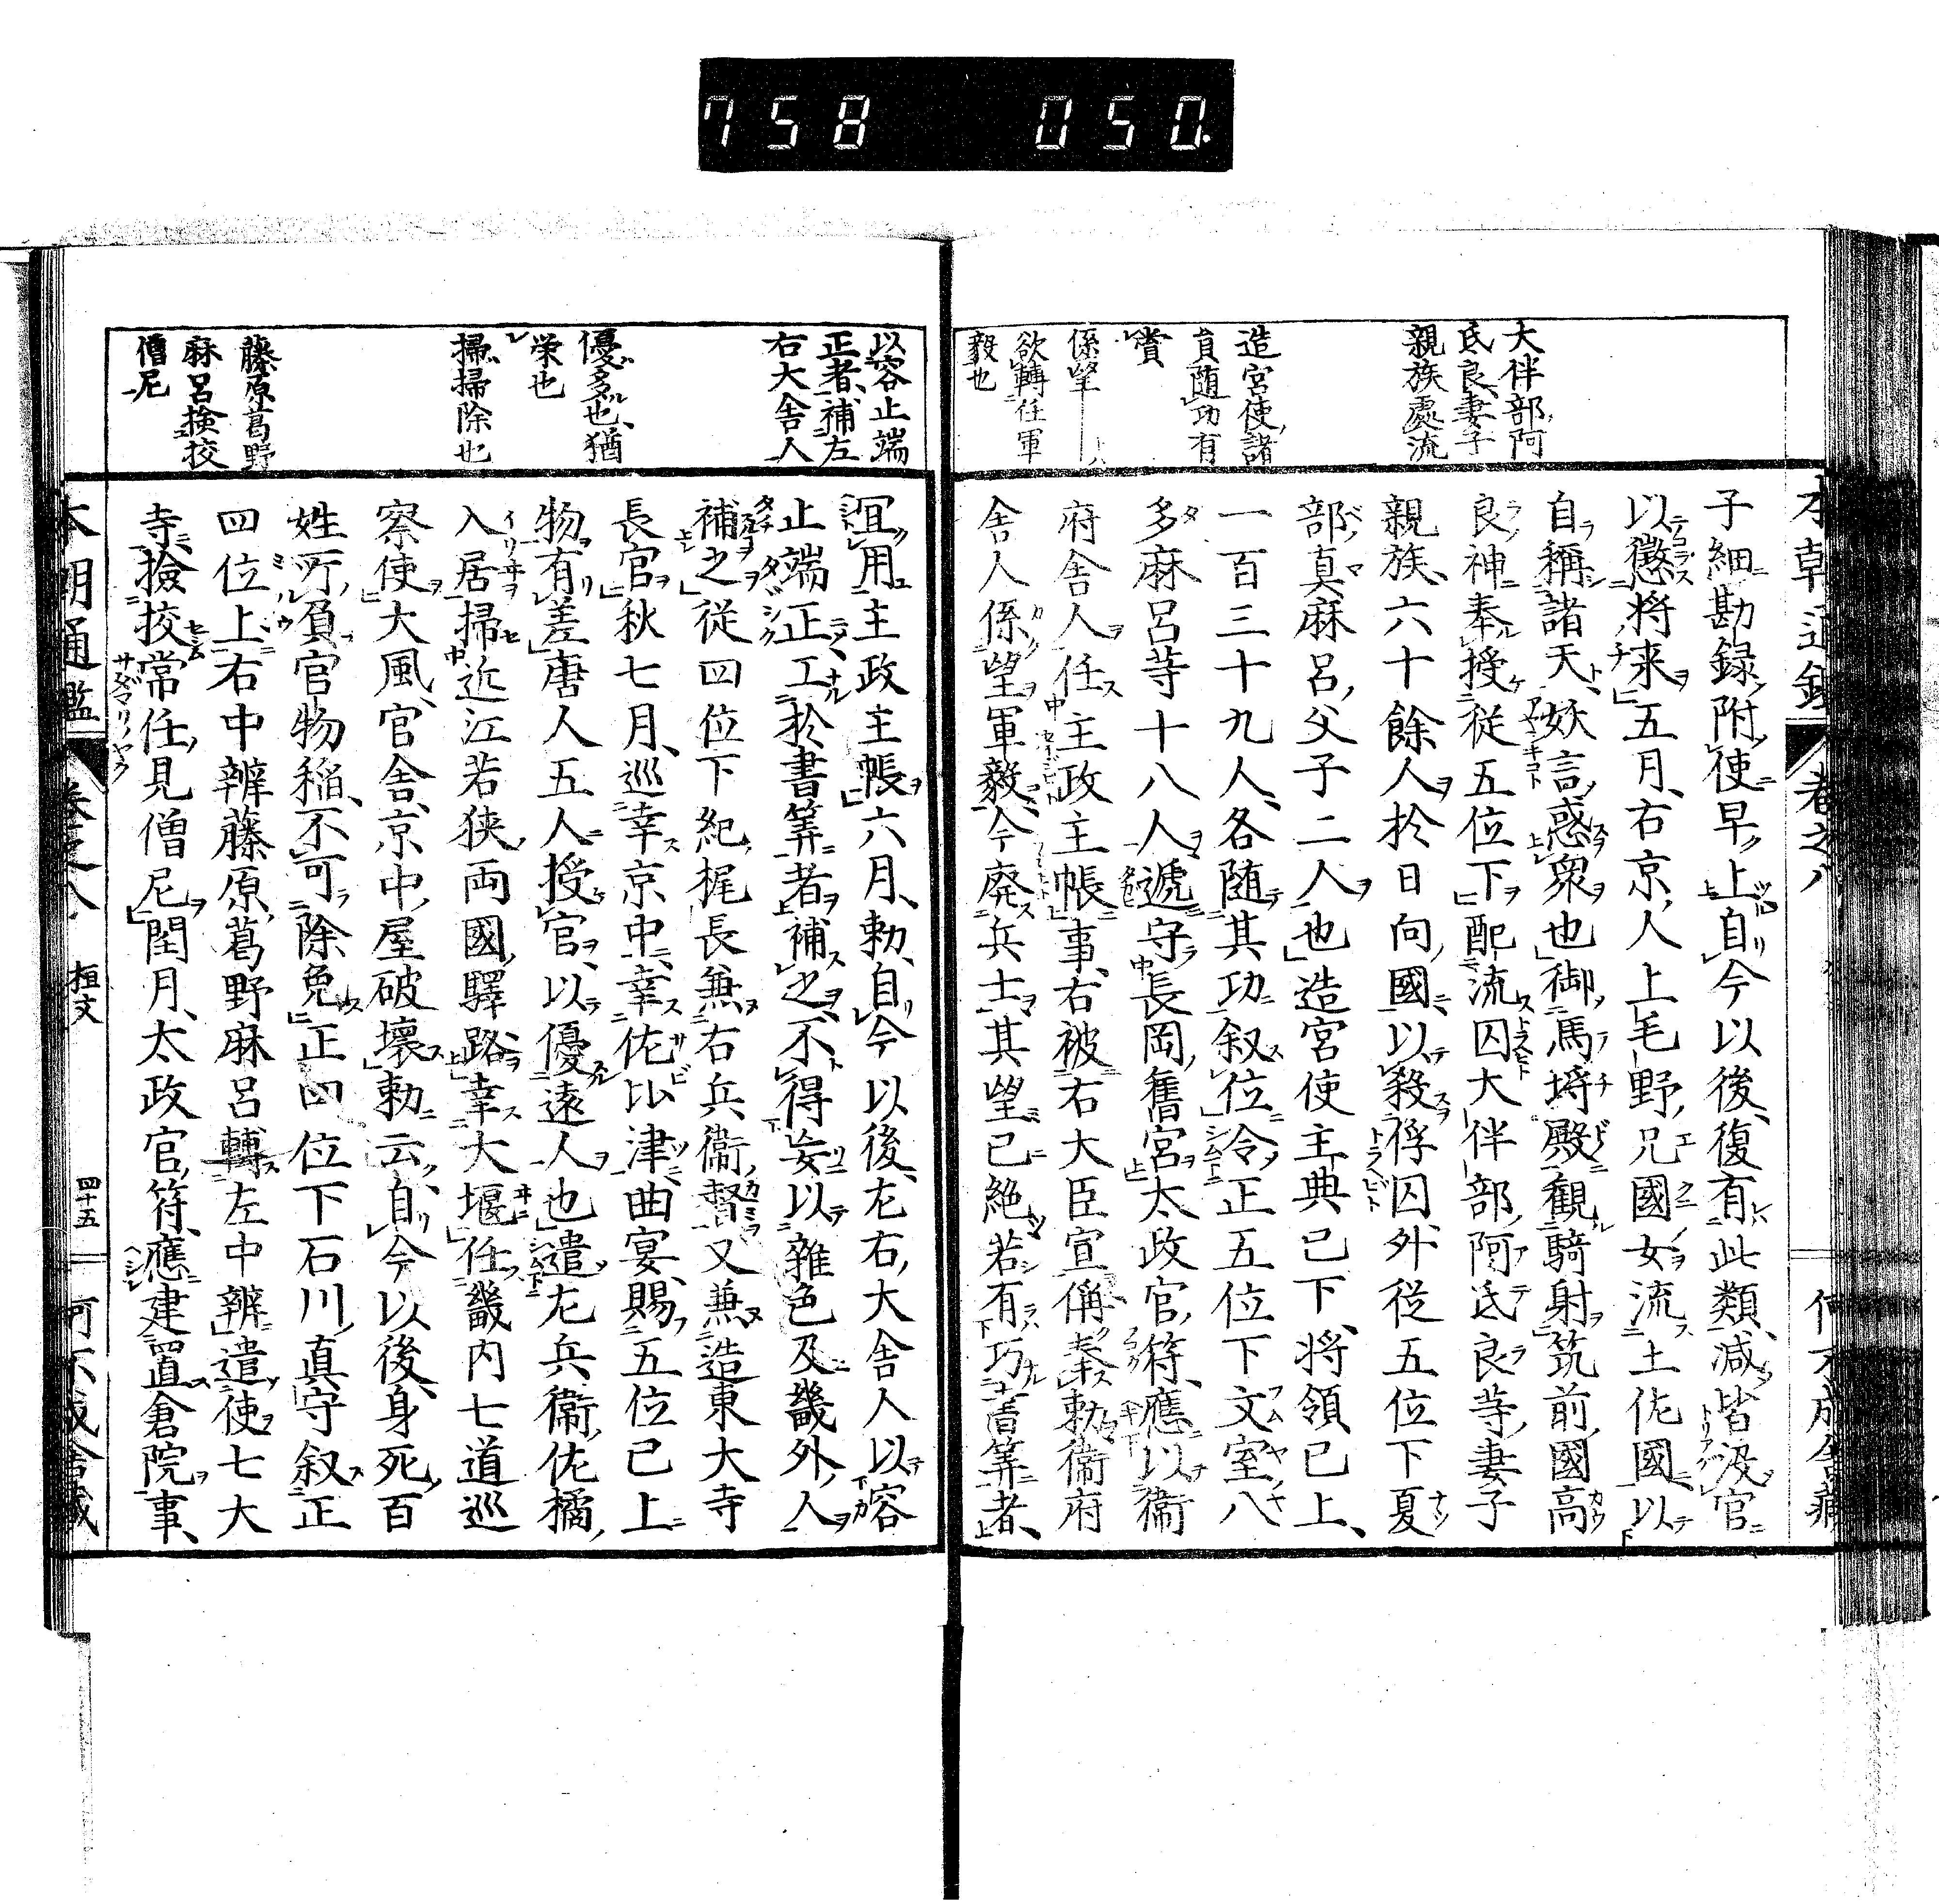 758 050
本朝通鑑 卷之八
何不成舎藏
大伴部阿
氐良妻子
親族處流
造宮使諸
貟随功有
賞
係望
欲轉任軍
毅也
子細勘録附使早上自今以後復有此類减皆没官
以懲将来五月右京人上毛野兄國女流土佐國以
自稱諸天妖言惑衆也御馬埒殿觀騎射筑前國高
良神奉授従五位下配流囚大伴部阿氐良等妻子
親族六十餘人於日向國以殺俘囚外従五位下夏
部真麻呂父子二人也造宮使主典已下将領已上
一百三十九人各随其功叙位令正五位下文室八
多麻呂等十八人遞守長岡舊宮太政官符應以衞
府舎人任主政主帳事右被右大臣宣偁奉勅衞府
舎人係望軍毅今廢兵士其望已絶若有巧書筭者
以容止端
正者補左
右大舎人
優多也猶
栄也
掃掃除也
藤原葛野
麻呂検挍
僧尼
宜用主政主帳六月勅自今以後左右大舎人以容
止端正工於書筭者補之不得妄以雜色及畿外人
補之従四位下紀梶長兼右兵衞督又兼造東大寺
長官秋七月巡幸京中幸佐比津曲宴賜五位已上
物有差唐人五人授官以優遠人也遣左兵衞佐橘
入居掃近江若狭両國驛路幸大堰任畿内七道巡
察使大風官舎京中屋破壊勅云自今以後身死百
姓所負官物稲不可除免正四位下石川真守叙正
四位上右中辨藤原葛野麻呂轉左中辨遣使七大
寺撿挍常任見僧尼閏月太政官符應建置倉院事
本朝通鑑 卷之八 桓文 四十五 何不成舎藏